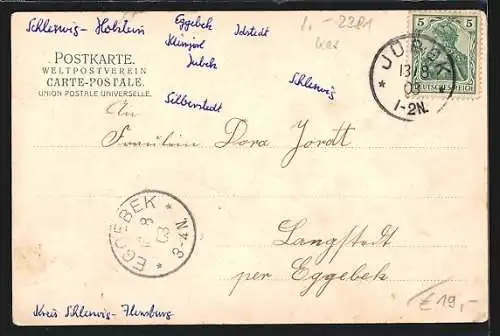 Schleswig-Holstein
Eggebek
Idstedt
1.- 2981
Kleinjörl
Jübek
Schleswig
Silberstedt
POSTKARTE.
WELTPOSTVEREIN
CARTE-POSTALE.
UNION POSTALE UNIVERSELLE.
5 5
DEUTSCHES REICH
JÜBEK
13 8
03
1-2N.
An
Fräulein Dora Jordt
EGGEBEK
8
03
3-4N
Langstedt
per Eggebek
Kreis Schleswig-Flensburg
€19,-